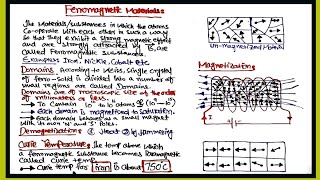 Ferromagnetic Materials:
The Materials/substances in which the atoms
Co-operate with each other in such a way
so that they exhibit a strong magnetic effect
and are strongly attracted by B, are
called Ferromagnetic substances.
Examples: Iron, Nickle, Cobalt etc
Domains: According to Weiss, Single crystal
of ferro-solid is divided into a number of
small regions are called Domains.
Domains are of microscopic size by the order
of millimeters or less.
→ To contain
→ Each domain is magnetized to saturation.
each domain behaves as a small magnet
with its own N and S Poles.
Demagnetization: Heat by hammering
Curie Temperature: The temp above which
a ferromagnetic substance becomes
called curie temp.
→ Curie temp for iron is about 750C
Un-magnetized material
Magnetizations
I